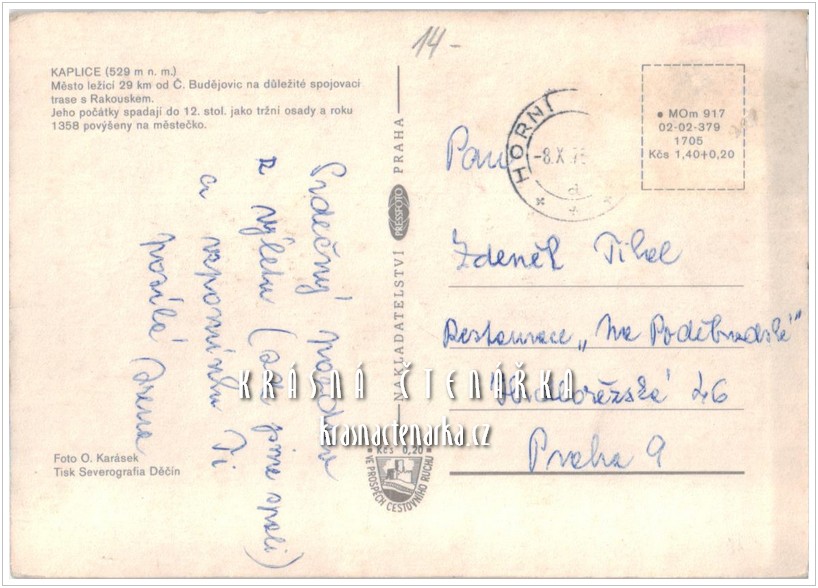 14-
KAPLICE (529 m n. m.)
Město ležící 29 km od Č. Budějovic na důležité spojovací
trase s Rakouskem.
Jeho počátky spadají do 12. stol. jako tržní osady a roku
1358 povýšeny na městečko.
Srdečný pozdrav
z výletu (zde jsme spali)
a vzpomínku Ti
posílá Irena
Foto O. Karásek
Tisk Severografia Děčín
NAKLADATELSTVÍ PRESSFOTO PRAHA
Kčs 0,20
VE PROSPĚCH CESTOVNÍHO RUCHU
HORNÍ
-8.X.
MOm 917
02-02-379
1705
Kčs 1,40+0,20
Pan
Zdeněk
Restaurace „Na Poděbradské"
46
Praha 9
KRÁSNÁ ČTENÁŘKA
krasnactenarka.cz